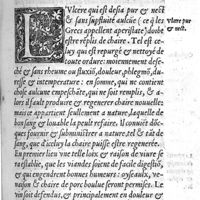 L'Vlcere qui est desia pur & nect
& sans supstuité aulcūe (ce q̄ les
Grecs appellent aperistate) doibt
estre replis de chaire. Tel est ce-
luy qui est repurgé & nettoyé de
toute ordure: moiennement dese-
ché & sans rheume ou fluxiō, douleur, phlegmō, du-
resse & intemperature: en somme, qui ne contient
chose aulcune empeschāte, qui ne soit remplis, & a-
lors il fault produire & regenerer chaire nouuelle:
mais ce appartient seullement a nature, laquelle de
bon sang & louable la peult refaire. Il conuiēt dōc-
ques fournir & subministrer a nature, tel & tāt de
sang, que d'icelluy la chaire puisse estre regenerée.
En premier lieu vne telle loix & raison de viure se-
ra establie, que les viandes soiēt de facile digestiō,
& qui engendrent bonnes humeurs: oyseaulx, ve-
naison & chaire de porc boullue seront permises. Le
vin soit defendus, & principalement en douleur &
Vlcere pur
& nect.